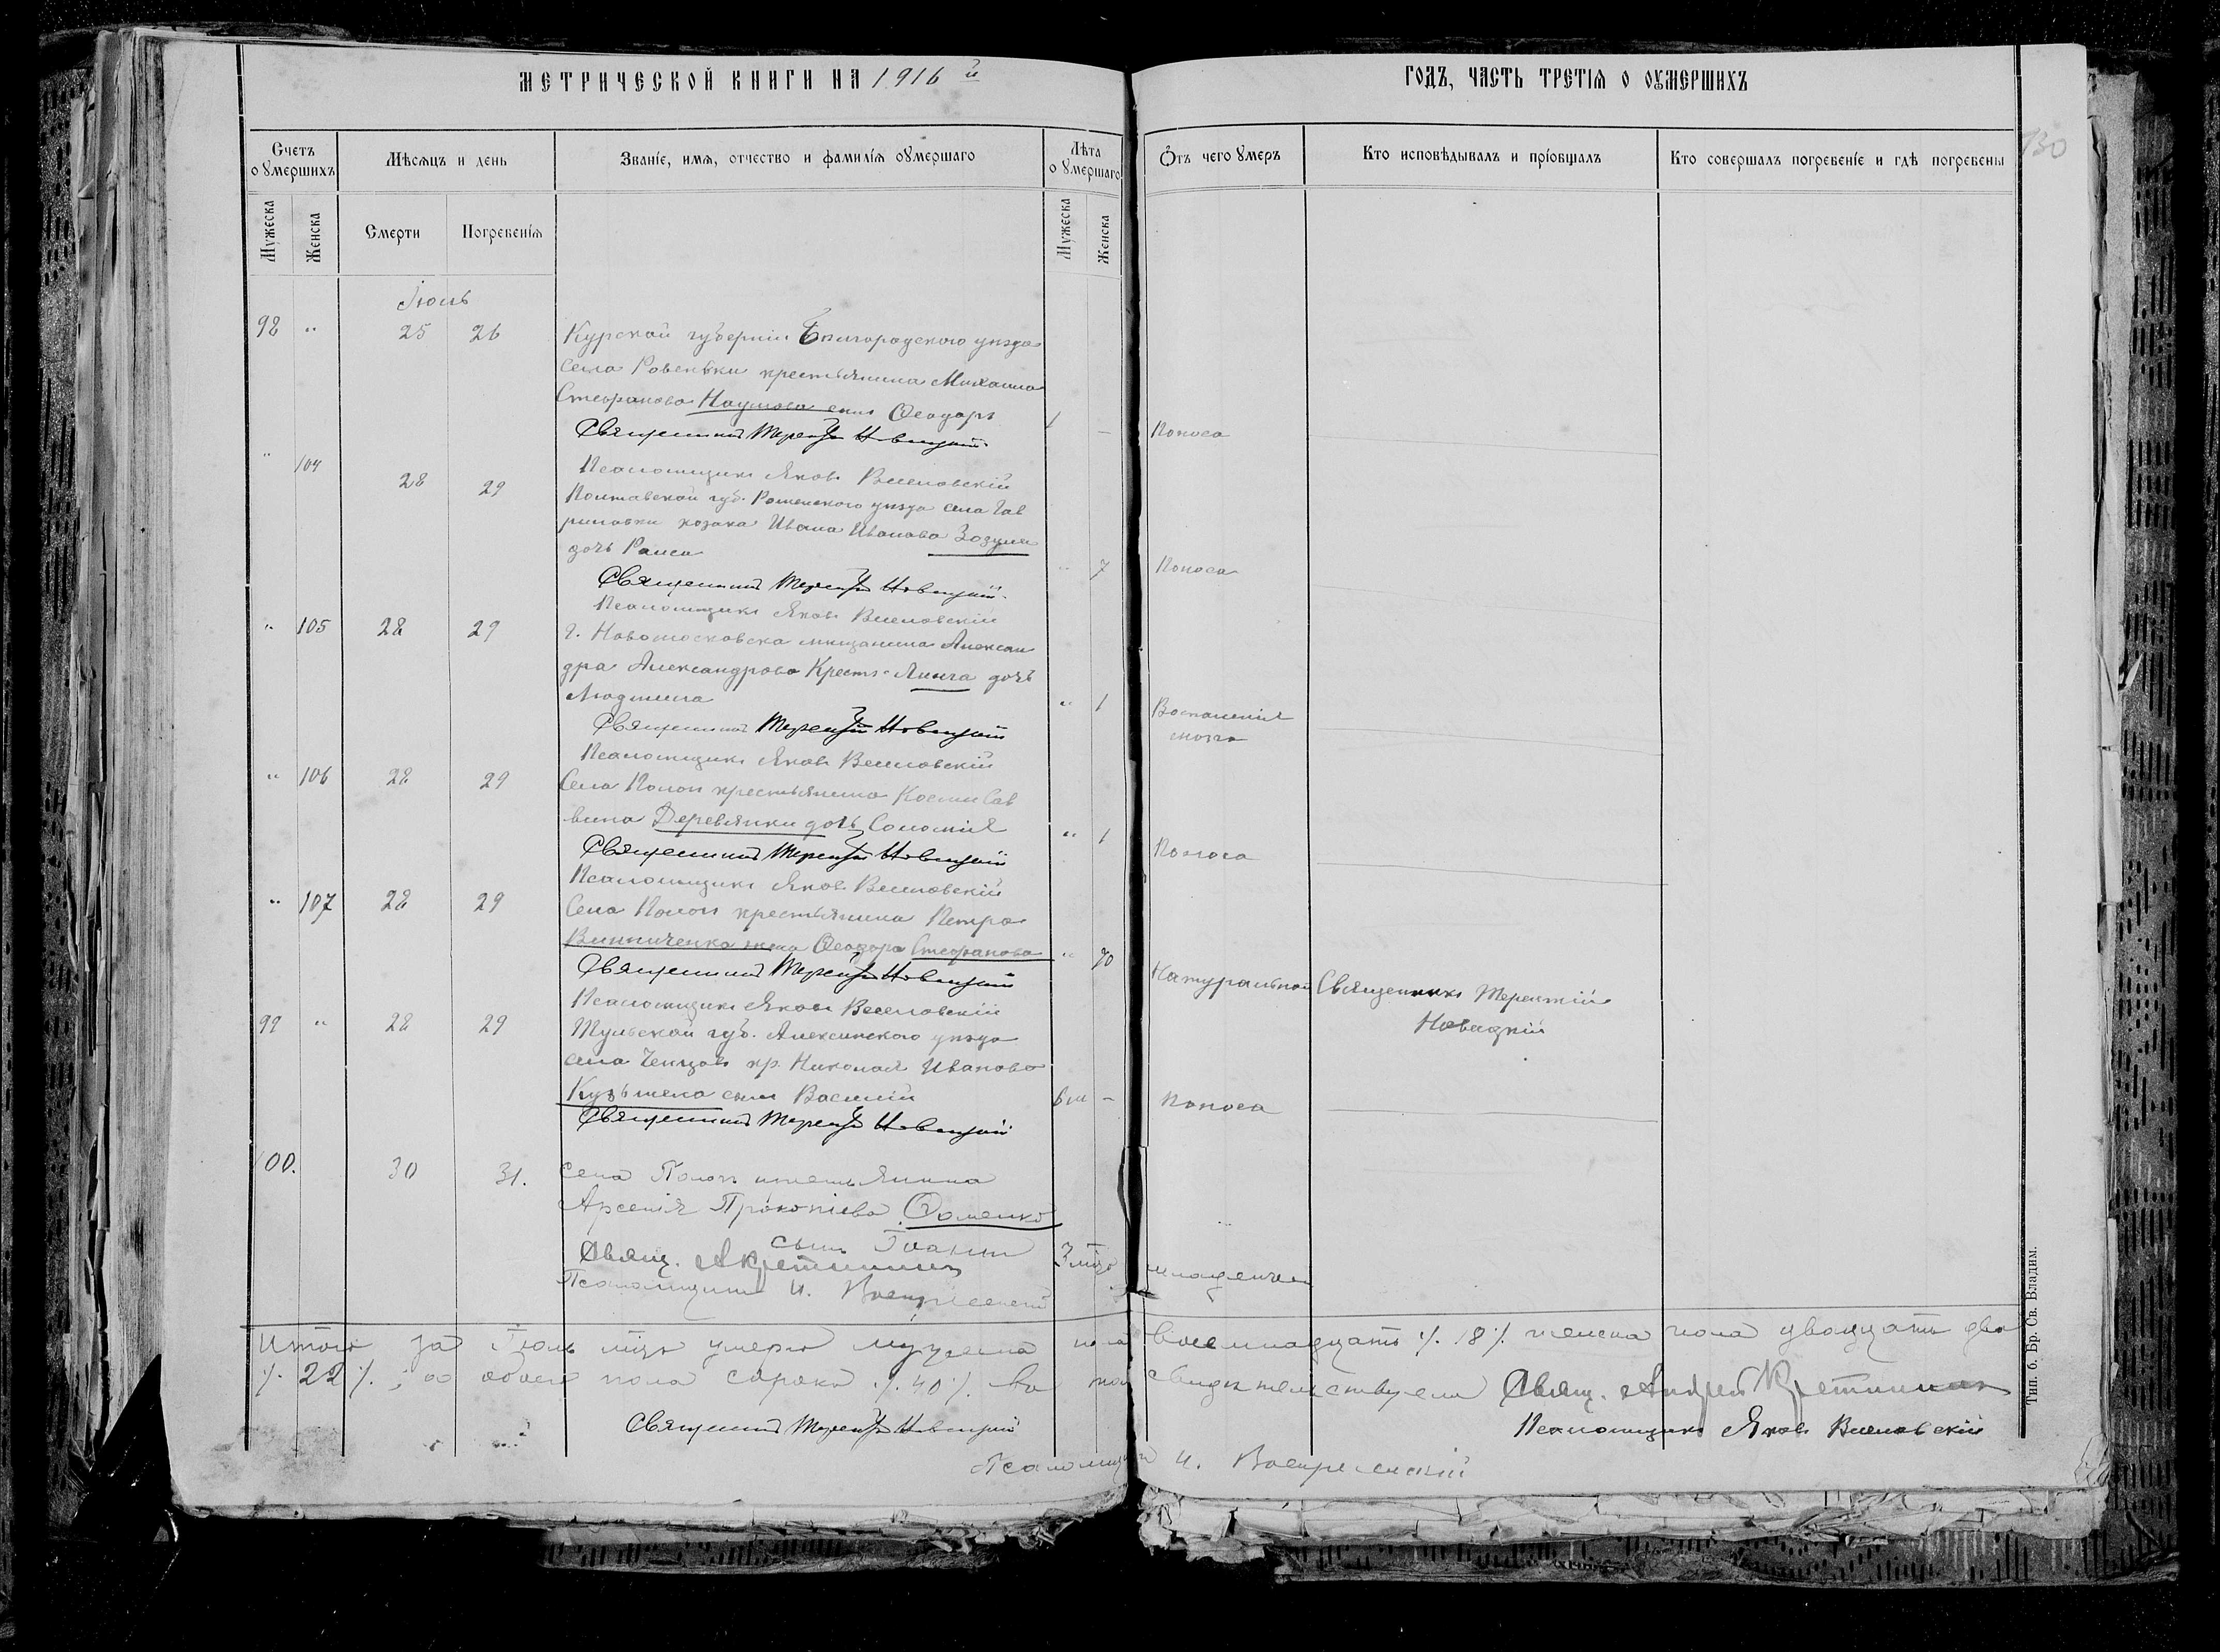 МЕТРИЧЕСКОЙ КНИГИ НА 1916 й
ГОДЪ, ЧАСТЬ ТРЕТІЯ О ОУМЕРШИХЪ
130
Счетъ оумершихъ
Мѣсяцъ и день
Званіе, имя, отчество и фамилія оумершаго
Лѣта оумершаго
Отъ чего умеръ
Кто исповѣдывалъ и пріобщалъ
Кто совершалъ погребеніе и гдѣ погребены
Мужеска
Женска
Смерти
Погребенія
Мужеска
Женска
Іюль
98 " 25 26 Курской губерніи Бѣлгородскаго уѣзда
села Ровеньки крестьянина Михаила
Стефанова Наумова сынъ Ѳеодоръ
1 — Поноса
Священникъ Терентій Новицкій
Псаломщикъ Яковъ Веселовскій
" 104 28 29 Полтавской губ. Роменскаго уѣзда села Гав
риловки козака Ивана Иванова Зозули
дочь Раиса
" 7 Поноса
Священникъ Терентій Новицкій
Псаломщикъ Яковъ Веселовскій
" 105 28 29 г. Новомосковска мѣщанина Алексан
дра Александрова дочь
Людмила
" 1 Воспаленія
мозга
Священникъ Терентій Новицкій
Псаломщикъ Яковъ Веселовскій
" 106 28 29 Села Пологъ крестьянина Космы Сав
вина Деревянки дочь Соломія
" 1 Поноса
Священникъ Терентій Новицкій
Псаломщикъ Яковъ Веселовскій
" 107 28 29 Села Пологъ крестьянина Петра
Винниченка жена Ѳеодора Стефанова
" 70 Натуральной Священникъ Терентій
Новицкій
Священникъ Терентій Новицкій
Псаломщикъ Яковъ Веселовскій
99 " 28 29 Тульской губ. Алексинскаго уѣзда
села кр. Николая Иванова
сынъ Василій
6 м — Поноса
Священникъ Терентій Новицкій
100. 30 31. села Пологъ крестьянина
Арсенія Прокопіева Ѳоменко
сынъ Іоаннъ
3 мѣс младенч.
Свящ. А Кретининъ
Псаломщикъ И. Воскресенскій
Итого за Іюль мѣс умерло мужеска пола восемнадцать ./. 18 ./. женска пола двадцать два
./. 22 ./. ; а обоего пола сорокъ ./. 40 ./. Въ томъ свидѣтельствуемъ Свящ. Андрей Кретининъ
Священникъ Терентій Новицкій
Псаломщикъ Яковъ Веселовскій
Псаломщикъ И. Воскресенскій
Тип. б. Бр. Св. Владим.